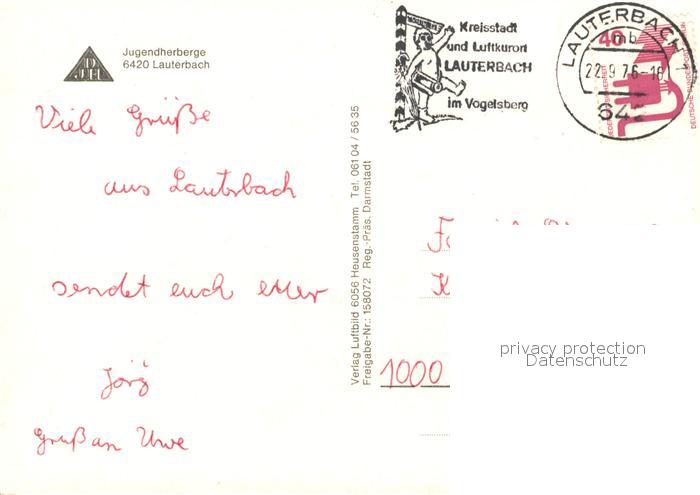 DJH
Jugendherberge
6420 Lauterbach
Viele Grüße
aus Lauterbach
sendet euch euer
Jörg
Gruß an Uwe
Verlag Luftbild 6056 Heusenstamm Tel. 061 04 / 56 35
Freigabe-Nr.: 158072 Reg.-Präs. Darmstadt
Kreisstadt
und Luftkurort
LAUTERBACH
im Vogelsberg
LAUTERBACH 1
mb
22.9.76-18
642
40
DEUTSCHE BUNDESPOST
1000
privacy protection
Datenschutz